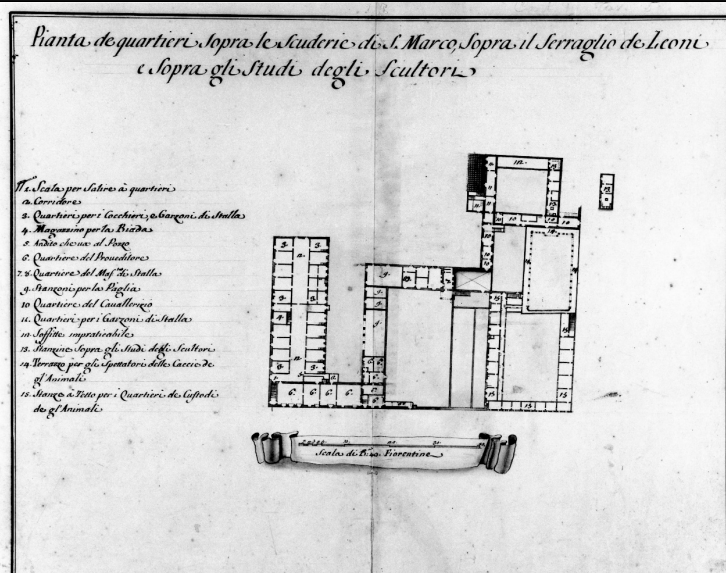 Pianta de quartieri Sopra le Scuderie di S. Marco, Sopra il Serraglio de Leoni
e Sopra gli Studi degli Scultori
1. Scala per Salire à quartieri
2. Corridore
3. Quartieri per i Cocchieri, e Garzoni di Stalla
4. Magazzino per la Biada
5. Andito che và al Pozzo
6. Quartiere del Proveditore
7. 8. Quartiere del di Stalla
9. Stanzoni per la Paglia
10 Quartiere del Cavallerizo
11. Quartieri per i Garzoni di Stalla
12 Soffitte impraticabile
13. Stanzine Sopra gli Studi degli Scultori
14 Terrazzo per gli Spettatori delle Caccie de
gl'Animali
15. Stanze à Tetto per i Quartieri de Custodi
de gl'Animali
Scala di Fiorentine